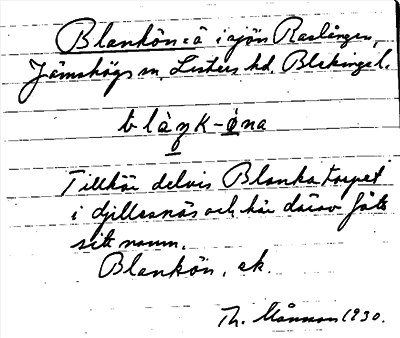 Blankön = ö i sjön Raslången,
Jämshögs sn, Listers hd, Blekinge l.
blàŋk-ø̀na
Tillhör delvis Blanka torpet
i Gillesnäs och har därav fått
sitt namn.
Blankön, ek.
Th. Månsson 1930.